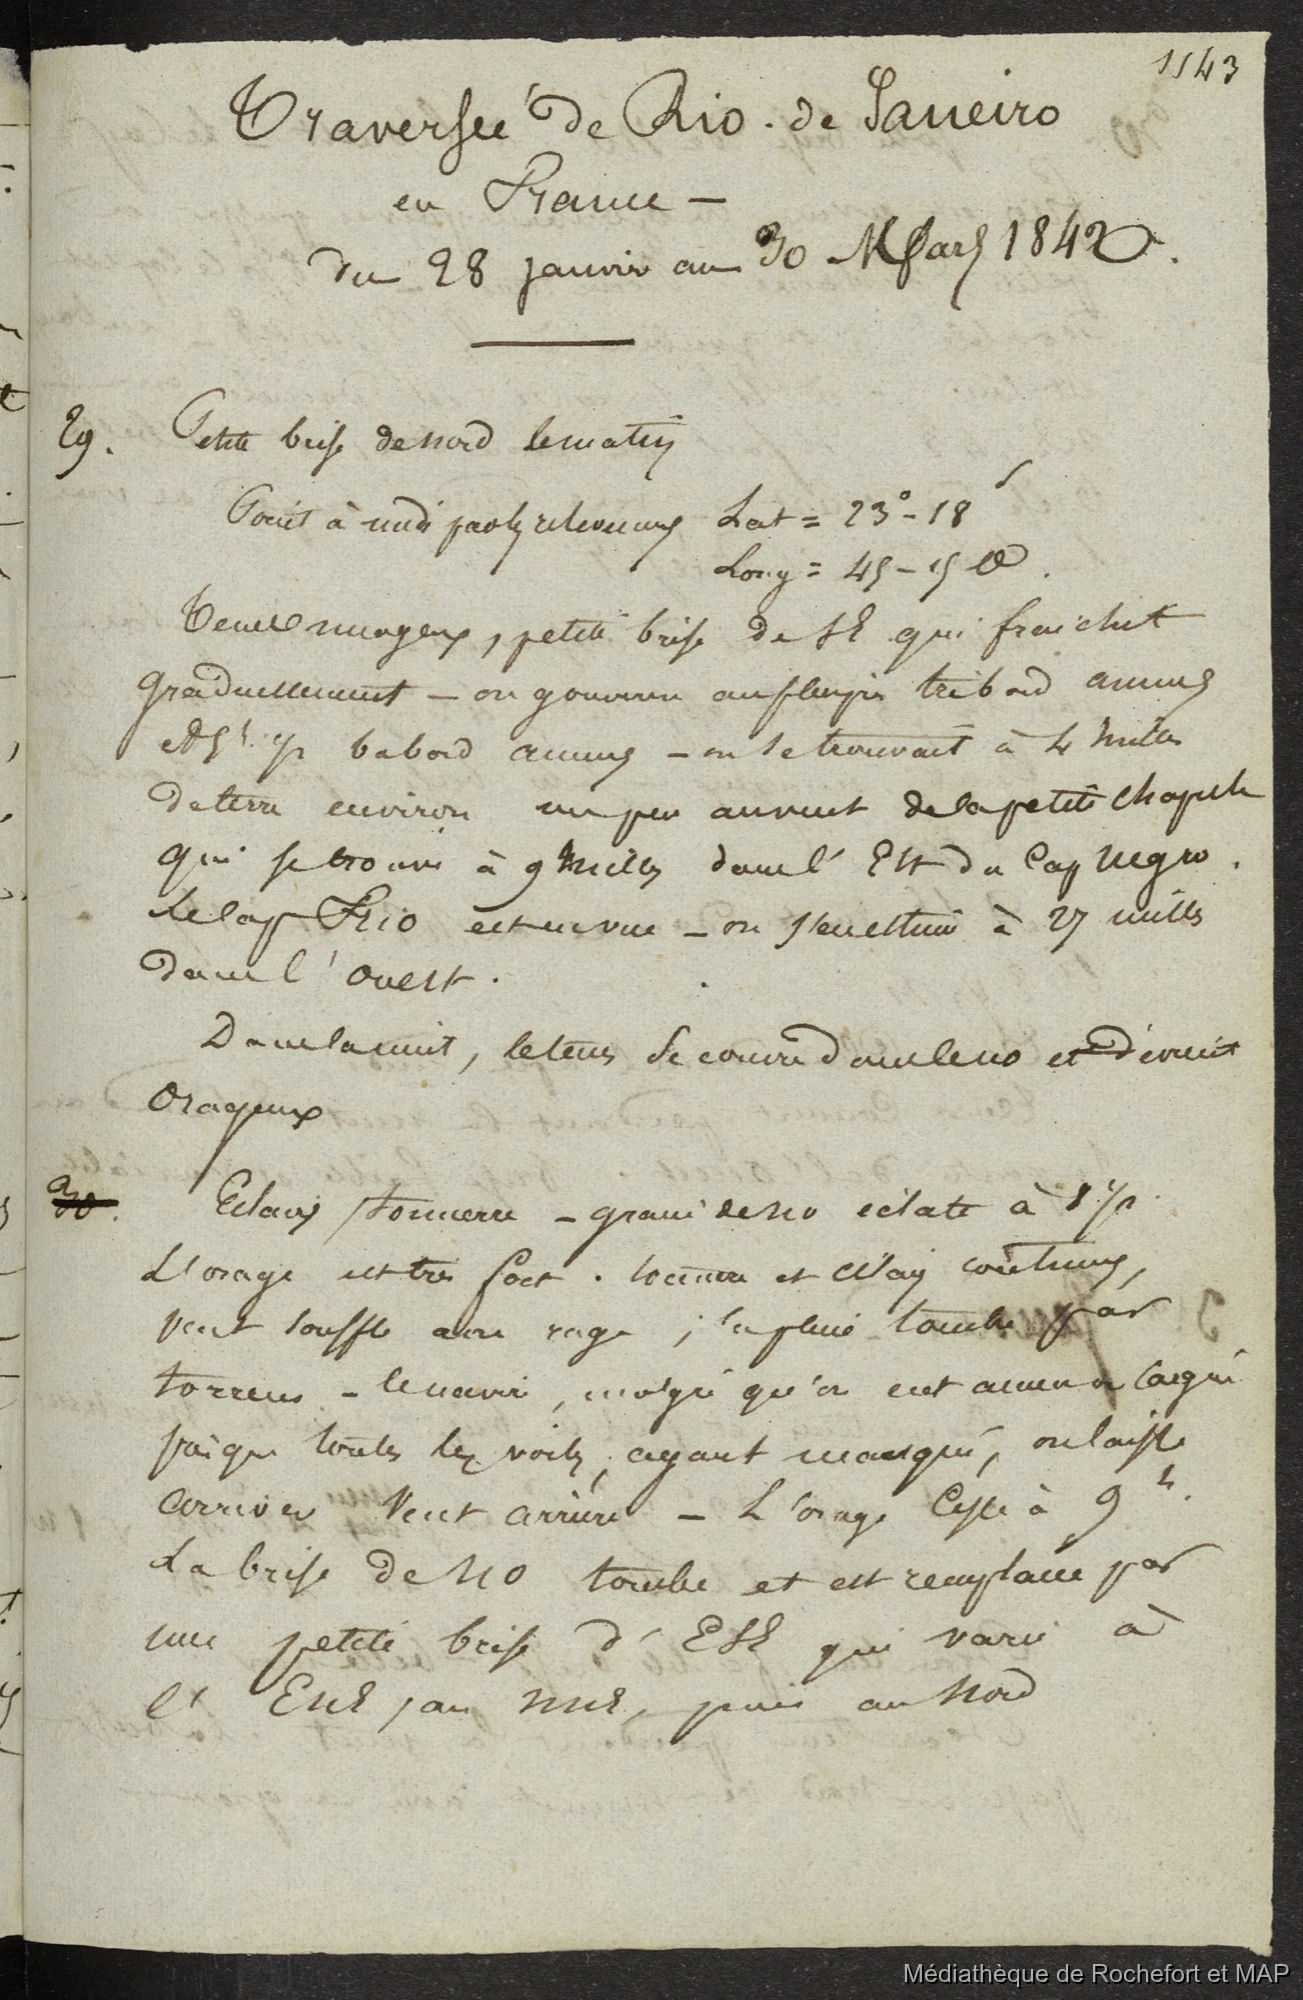 1143
Traversée de Rio. de Janeiro
en France —
du 28 janvier au 30 Mars 1842.
29. Petite brise de nord le matin
Point à midi par les relevements Lat = 23° - 18'
Long = 45 - 15 O.
Tems nuageux, petite brise de SE qui fraichit
graduellement — on gouverne au plus près tribord amures
et à 5h. 1/2 babord amures — on se trouvait à 4 milles
de terre environ un peu au vent de la petite chapelle
qui se trouve à 9 milles dans l'Est du Cap Negro.
Le Cap Frio est en vue — on s'en estime à 27 milles
dans l'Ouest.
Dans la nuit, le tems se couvre dans le NO et devient
Orageux
30. Eclairs, tonnerre — grain de NO éclate à 8 1/2.
L'orage est très fort. tonnerre et éclairs continus,
vent souffle avec rage ; la pluie tombe par
torrens — le navire, malgré qu'on eut amené cargué
presque toutes les voiles, ayant masqué, on laisse
arriver Vent arrière — L'orage Cesse à 9h.
La brise de NO tombe et est remplacée par
une petite brise d'ESE qui varie à
l'ENE, au NNE, puis au Nord
Médiathèque de Rochefort et MAP